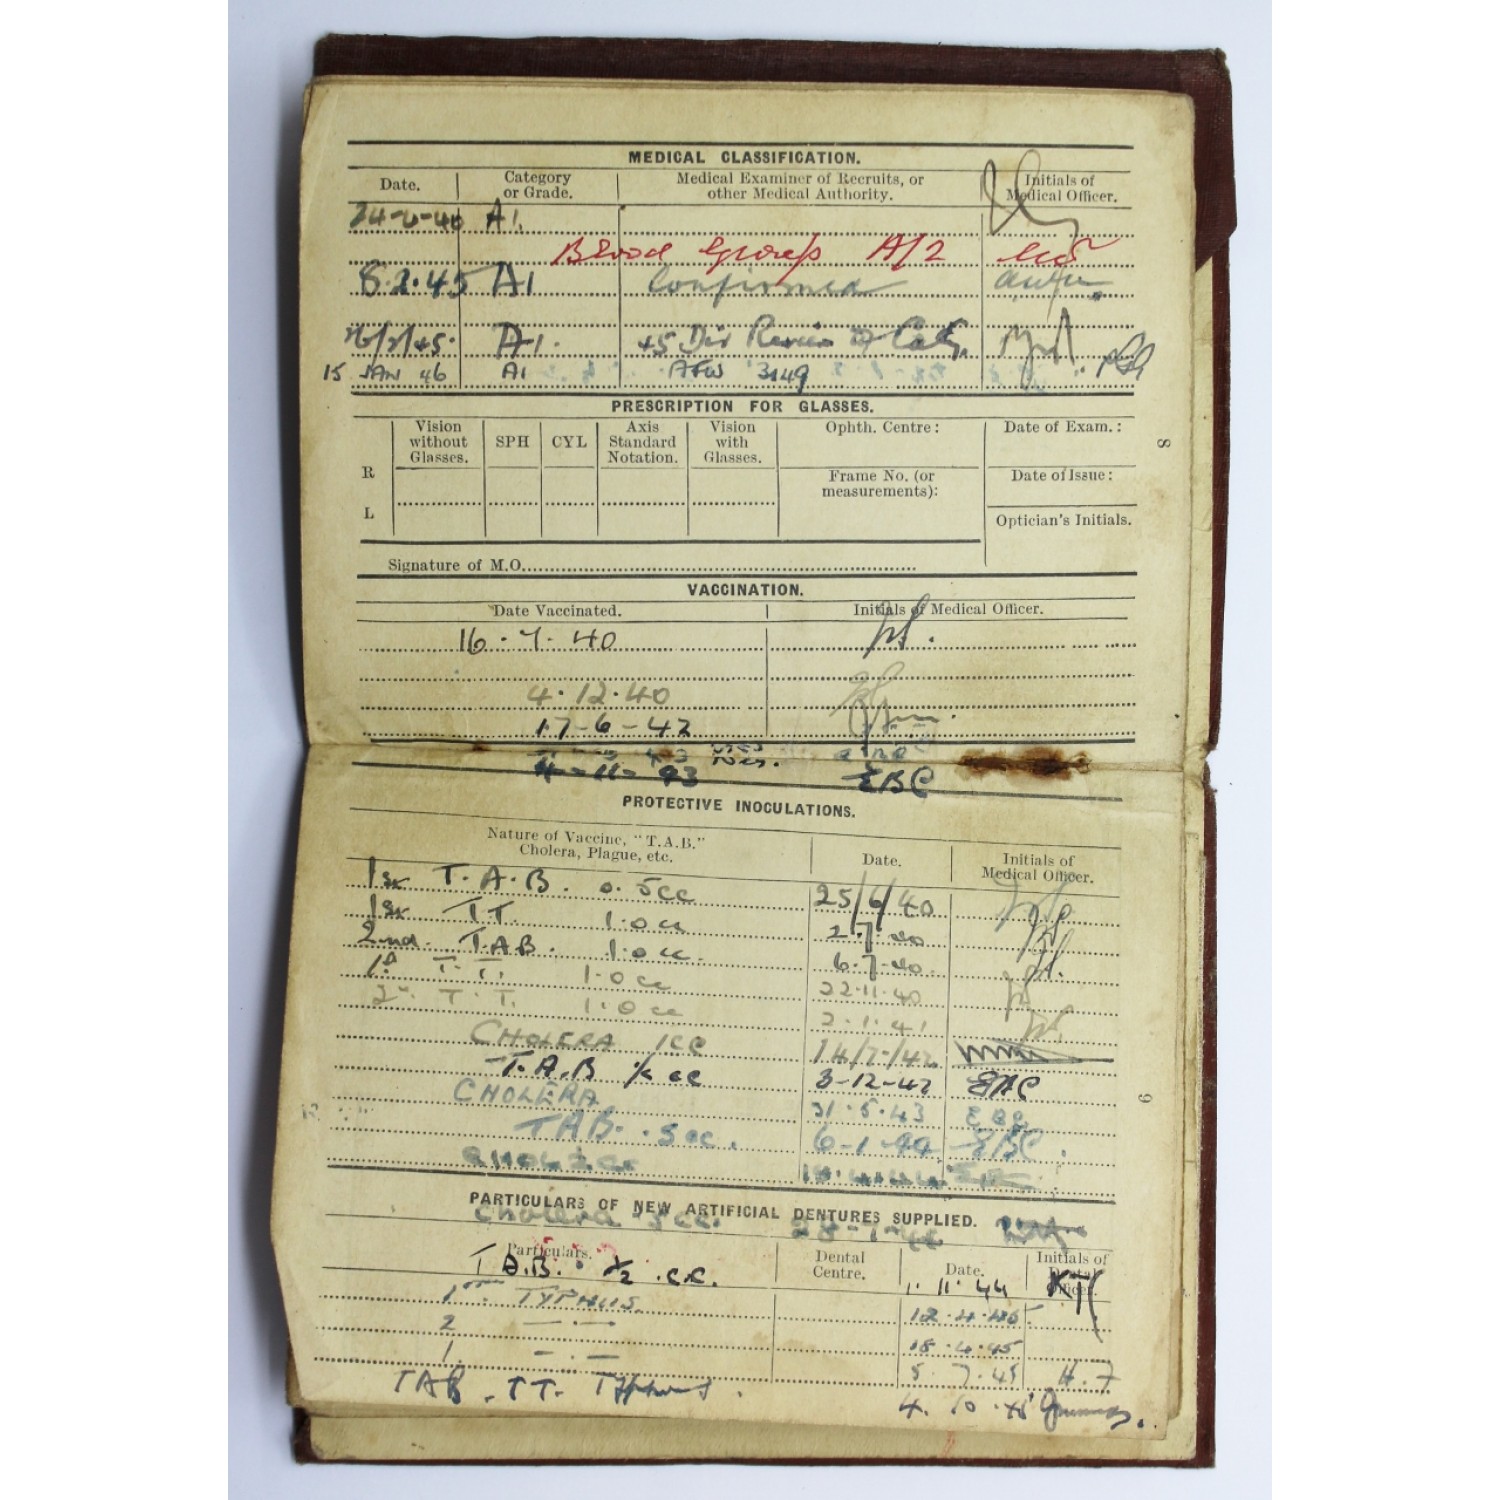 MEDICAL CLASSIFICATION.
Date. Category or Grade. Medical Examiner of Recruits, or other Medical Authority. Initials of Medical Officer.
24-6-40 A1.
Blood Group A/2
8.2.45 A1 Confirmed
A1. 45 Div Review of Cat
15 JAN 46 A1 AFW 3149
PRESCRIPTION FOR GLASSES.
Vision without Glasses. SPH CYL Axis Standard Notation. Vision with Glasses. Ophth. Centre: Date of Exam.:
R Frame No. (or measurements): Date of Issue:
L Optician's Initials.
8
Signature of M.O.
VACCINATION.
Date Vaccinated. Initials of Medical Officer.
16.7.40
4.12.40
17-6-42
4-11-43 EBC
PROTECTIVE INOCULATIONS.
Nature of Vaccine, "T.A.B." Cholera, Plague, etc. Date. Initials of Medical Officer.
1st T.A.B. 0.5cc 25/6/40
1st T.T. 1.0cc 2.7.40
2nd T.A.B. 1.0cc. 6.7.40.
T.T. 1.0cc 22.11.40
2 T.T. 1.0cc 2.1.41
CHOLERA 1cc 14/7/42
T.A.B ½cc 3-12-42
CHOLERA 31.5.43 EBC
TAB. .5cc. 6-1-44 EBC
9
PARTICULARS OF NEW ARTIFICIAL DENTURES SUPPLIED.
Cholera .5cc. 28-7-44
Particulars. Dental Centre. Date. Initials of Dental Officer.
T.A.B. ½ c.c. 1.11.44
1 TYPHUS 12.4.45
2 18.4.45
1. 5.7.45
TAB. TT. Typhus. 4.10.45